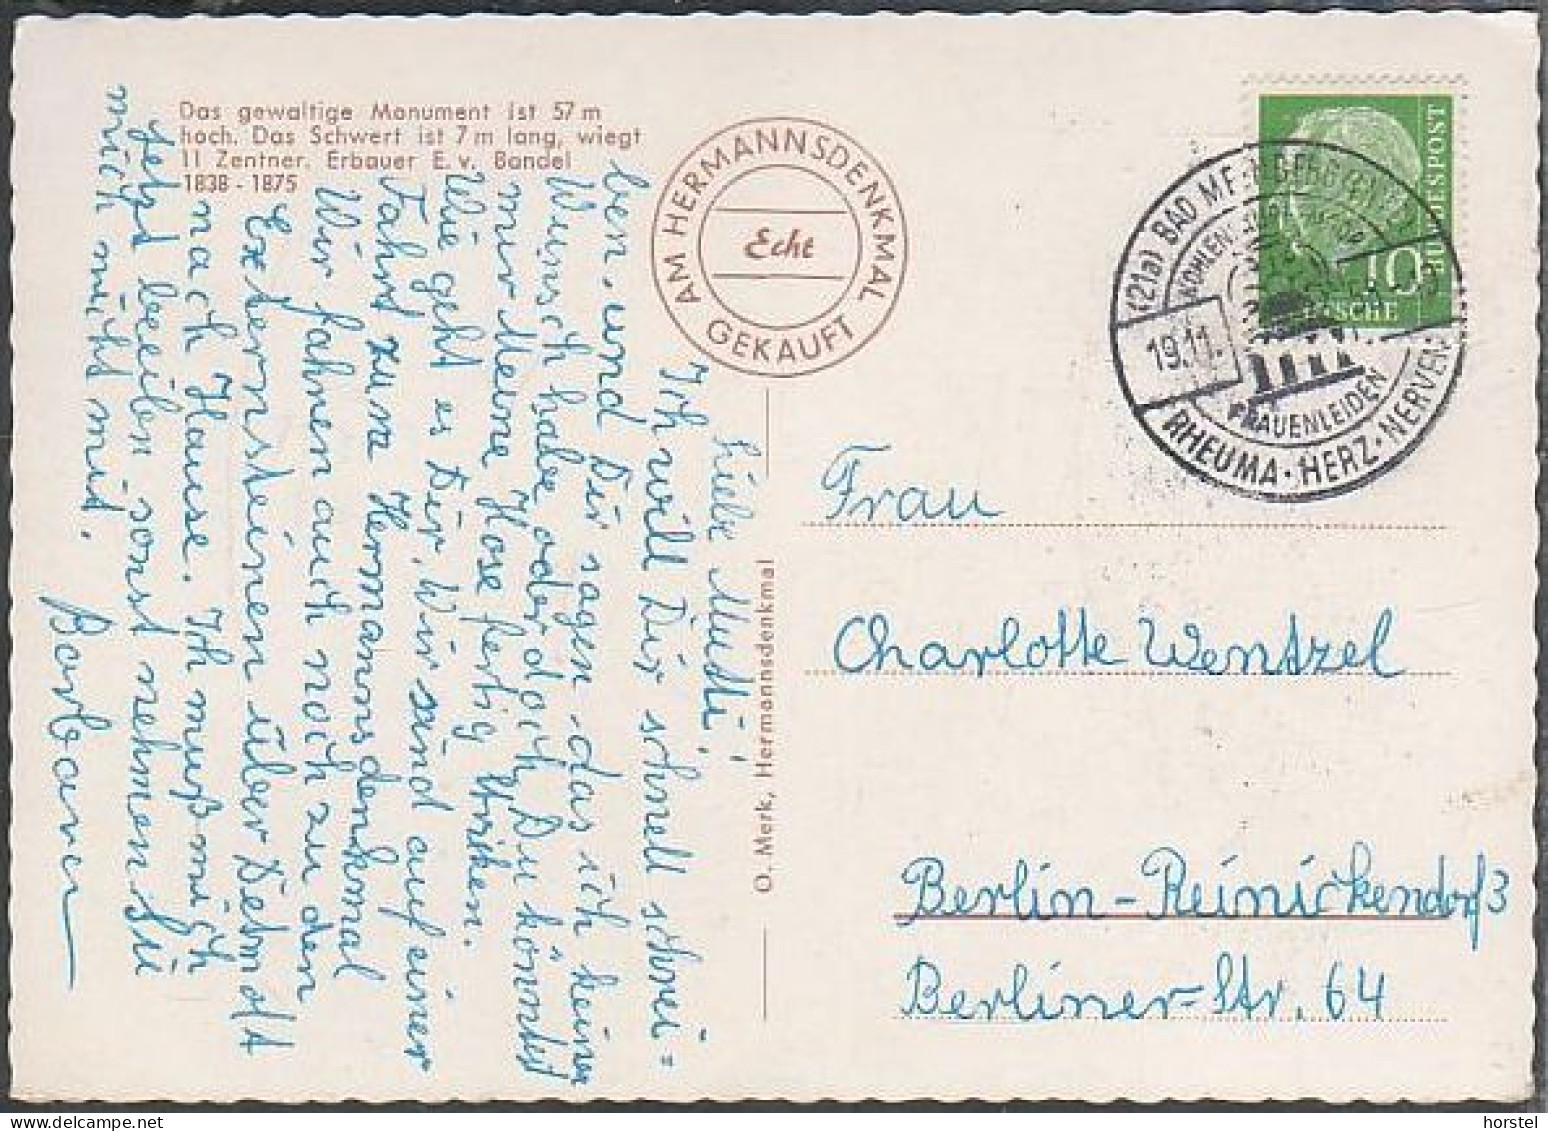 Das gewaltige Monument ist 57 m
hoch. Das Schwert ist 7 m lang, wiegt
11 Zentner. Erbauer E. v. Bandel
1838 - 1875
AM HERMANNSDENKMAL
Echt
GEKAUFT
Liebe Mudi,
Ich will Dir schnell schrei=
ben. und Dir sagen das ich keinen
Wunsch habe oder doch, Du könntest
mir Meine Hose fertig striken.
Wie geht es Dir, Wir sind auf einer
Fahrt zum Hermannsdenkmal
Wir fahren auch noch zu den
Externsteinen über Detmold
nach Hause. Ich muß mich
jetzt beeilen sonst nehmen Sie
mich nicht mit.
O. Merk, Hermannsdenkmal
BUNDESPOST
10
(21a) BAD
19.11.
FRAUENLEIDEN
RHEUMA · HERZ · NERVEN
Frau
Charlotte Wentzel
Berlin-Reinickendorf 3
Berliner-Str. 64
horstel